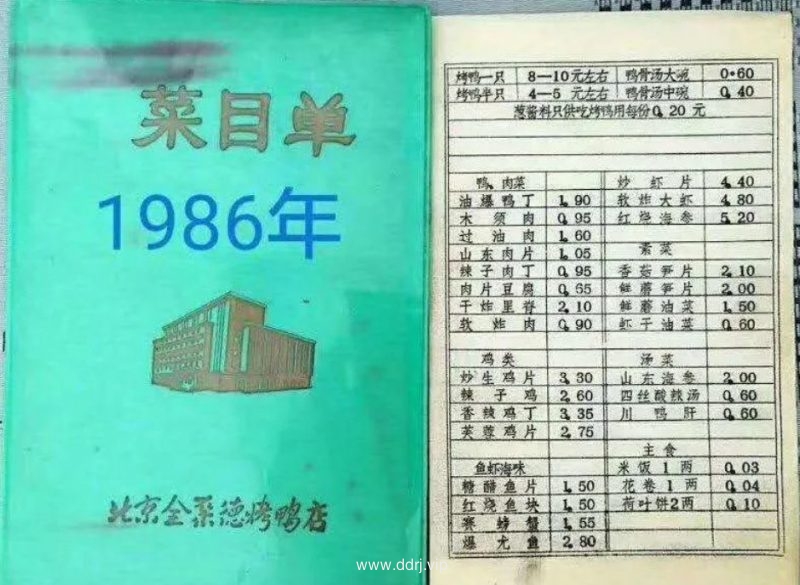 菜目单
1986年
北京全聚德烤鸭店
烤鸭一只 8—10元左右 鸭骨汤大碗 0.60
烤鸭半只 4—5 元左右 鸭骨汤中碗 0.40
葱酱料只供吃烤鸭用每份0.20 元
鸭、肉菜 炒虾片 4.40
油爆鸭丁 1.90 软炸大虾 4.80
木须肉 0.95 红烧海参 5.20
过油肉 1.60
山东肉片 1.05 素菜
辣子肉丁 0.95 香菇笋片 2.10
肉片豆腐 0.65 鲜蘑笋片 2.00
干炸里脊 2.10 鲜蘑油菜 1.50
软炸肉 0.90 虾子油菜 0.60
鸡类 汤菜
炒生鸡片 3.30 山东海参 2.00
辣子鸡 2.60 四丝酸辣汤 0.60
香辣鸡丁 3.35 川鸭肝 0.60
芙蓉鸡片 2.75
主食
鱼虾海味 米饭1两 0.03
糖醋鱼片 1.50 花卷1两 0.04
红烧鱼块 1.50 荷叶饼2两 0.10
赛螃蟹 1.55
爆尤鱼 2.80